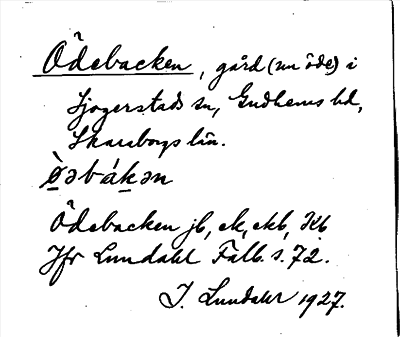 Ödebacken, gård (nu öde) i
Sjogerstads sn, Gudhems hd,
Skaraborgs län.
Ö̀əbákən
Ödebacken jb, ek, ekb, Kb
Jfr Lundahl Falb. s. 72.
I. Lundahl 1927.